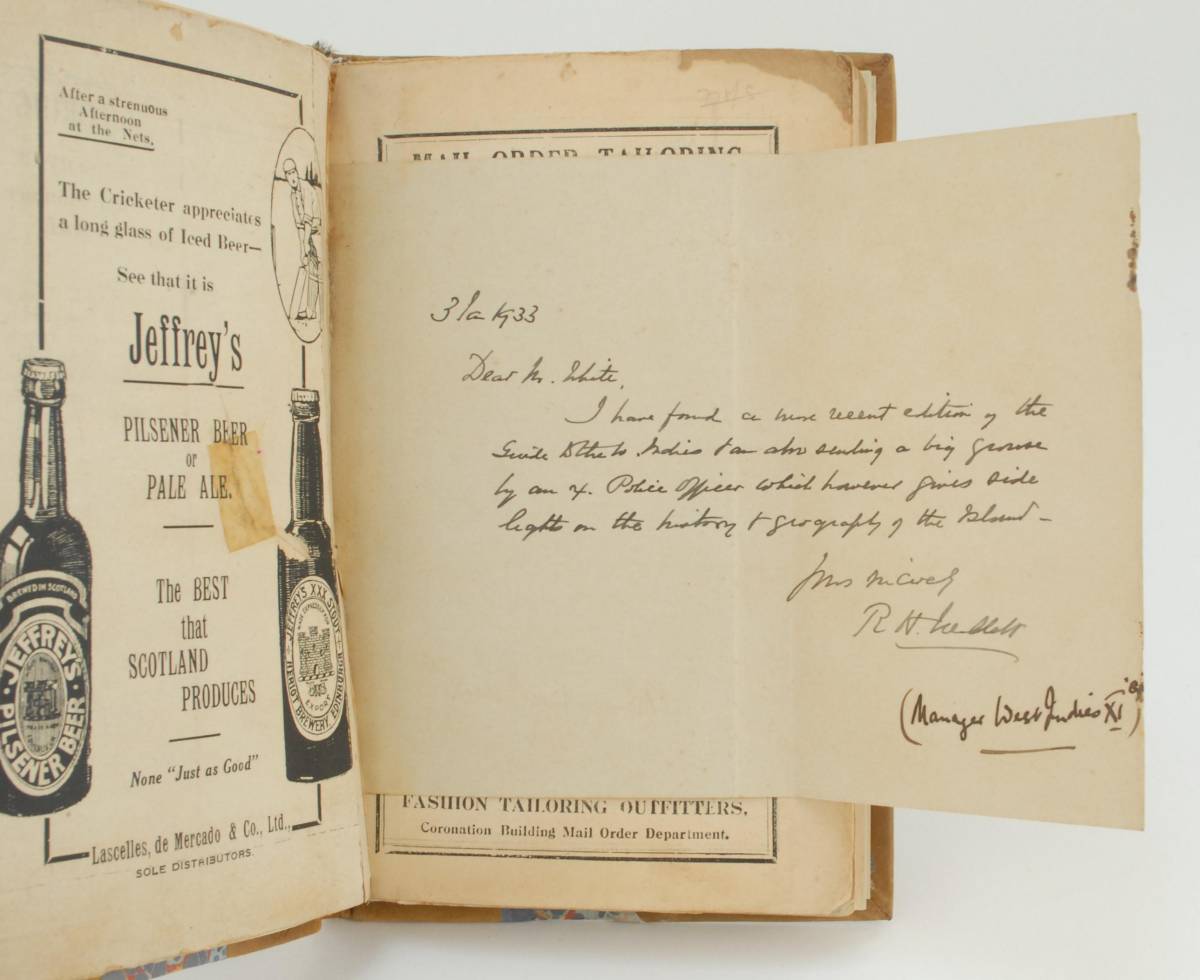 After a strenuous
Afternoon
at the Nets.
The Cricketer appreciates
a long glass of Iced Beer—
See that it is
Jeffrey's
PILSENER BEER
or
PALE ALE.
The BEST
that
SCOTLAND
PRODUCES
None "Just as Good"
Lascelles, de Mercado & Co., Ltd.,
SOLE DISTRIBUTORS.
BREWED IN SCOTLAND
JEFFREY'S
PILSENER BEER
JEFFREY'S XXX STOUT
HERIOT BREWERY, EDINBURGH
EXPORT
MAIL ORDER TAILORING
3 Jan 1933
Dear Mr. White,
I have found a more recent edition of the
Guide to the W. Indies & am also sending a big grouse
by an ex. Police Officer which however gives side
lights on the history & geography of the Island -
Yours sincerely
R H
(Manager West Indies XI)
FASHION TAILORING OUTFITTERS,
Coronation Building Mail Order Department.